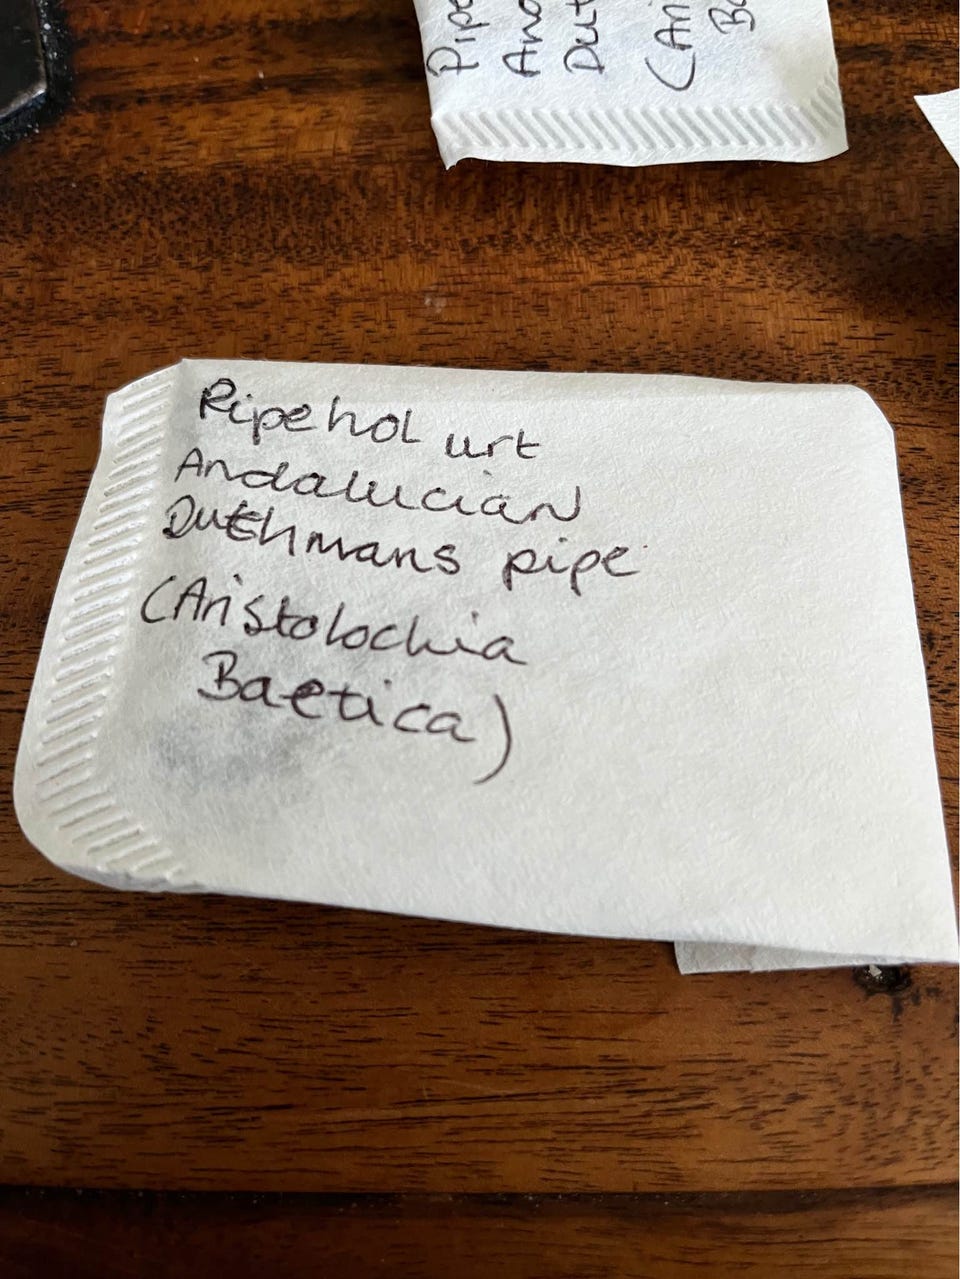 Pipe
And
Dut
(Ari
Ba
Pipehol urt
Andalucian
Duthmans pipe
(Aristolochia
Baetica)